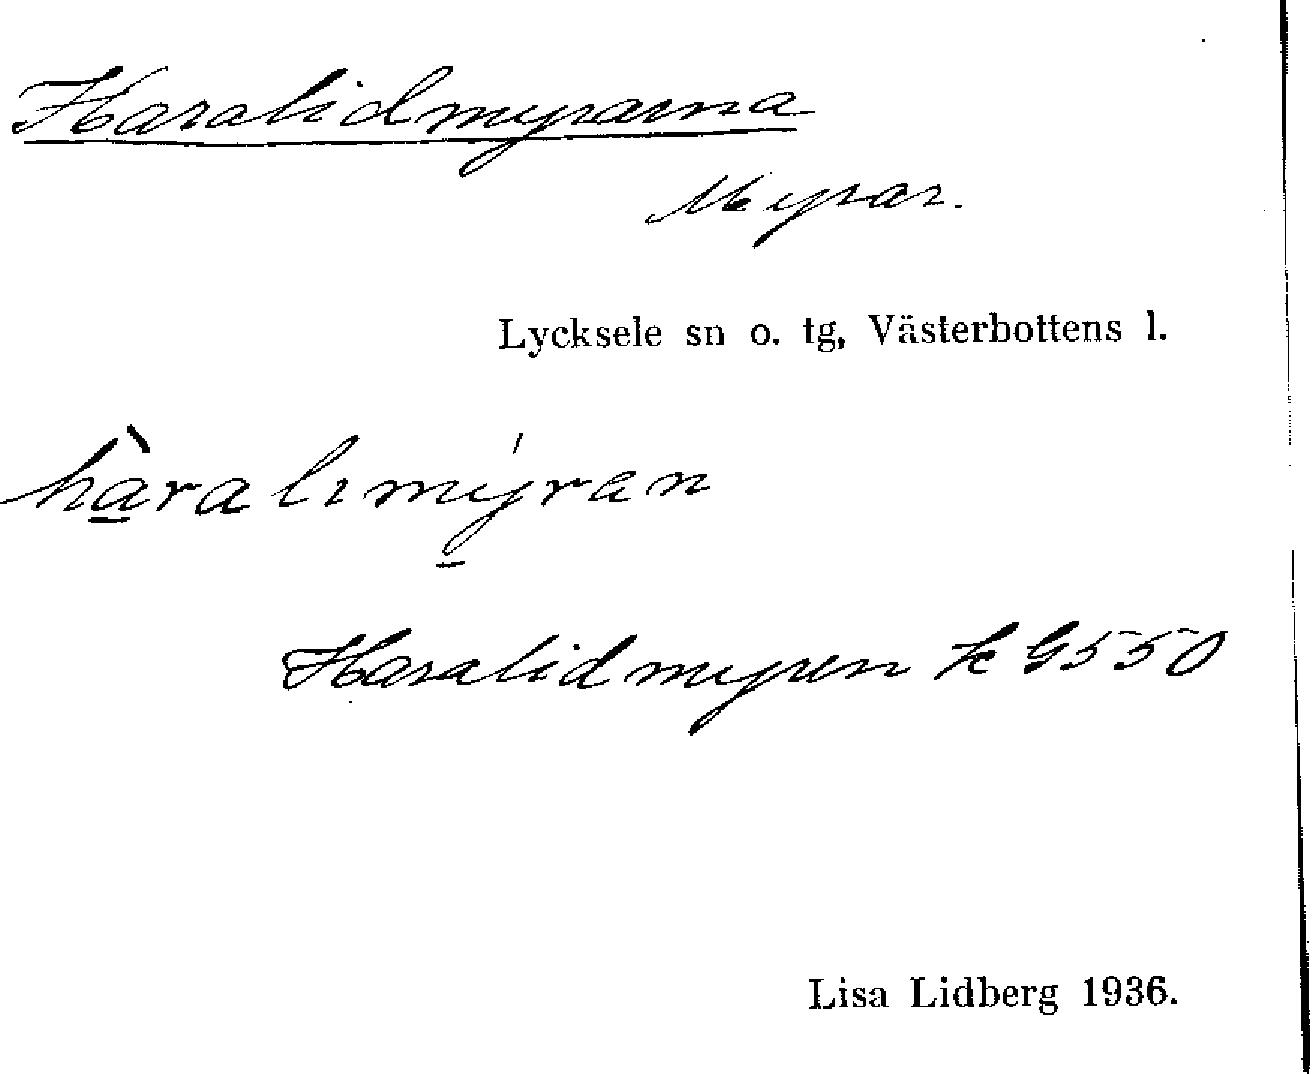 Haralidmyrarna
Myrar.
Lycksele sn o. tg, Västerbottens l.
hàralımýran
Haralidmyren k G550
Lisa Lidberg 1936.